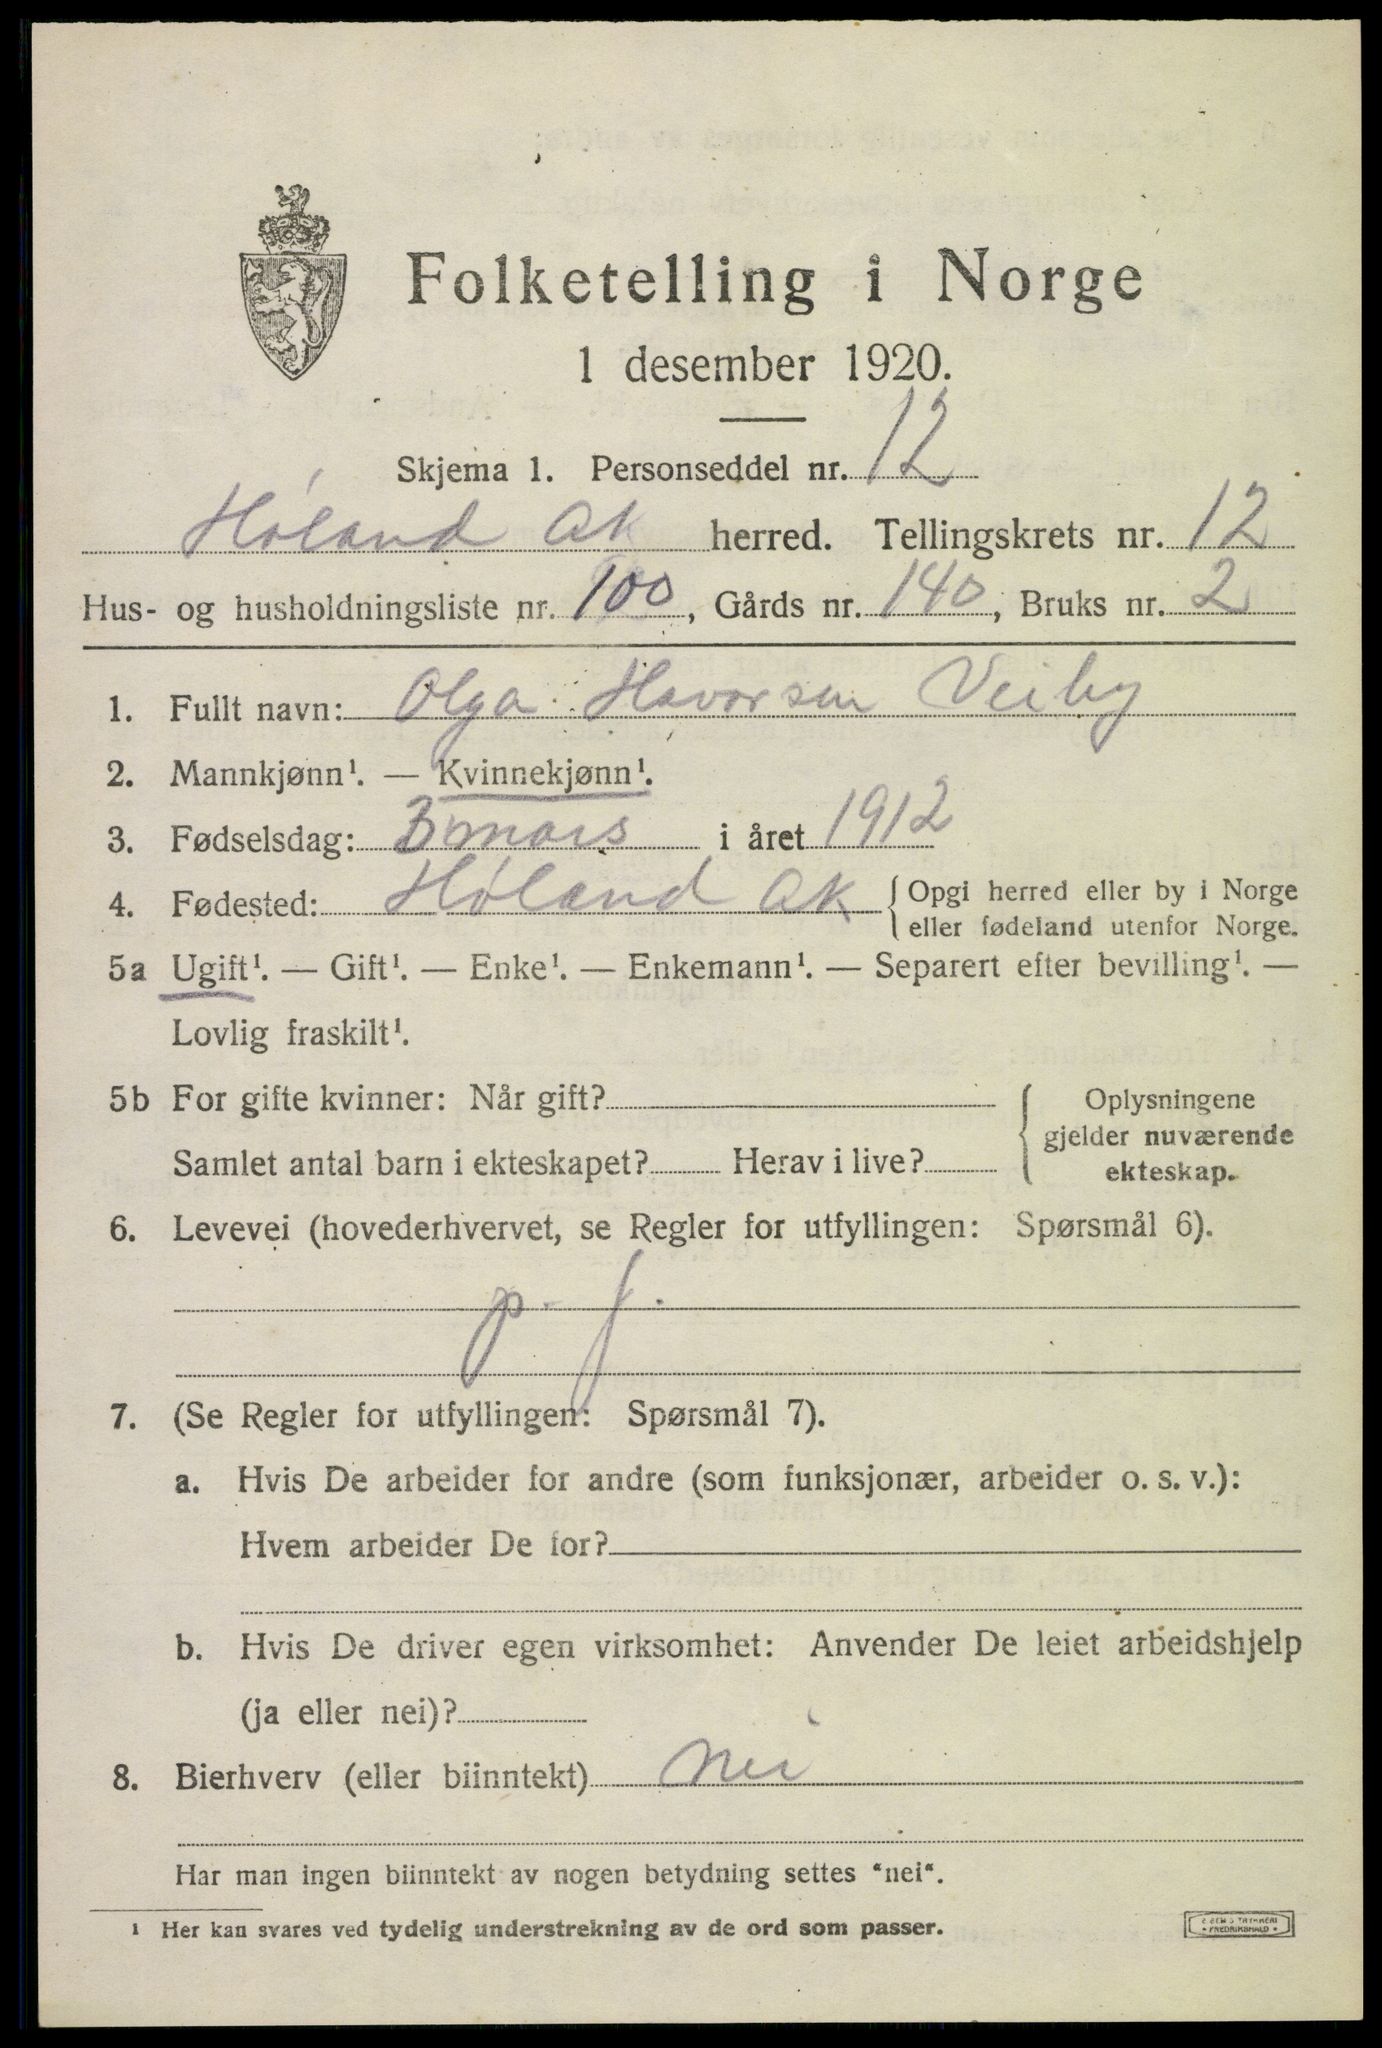 Folketelling i Norge
1 desember 1920.
Skjema 1. Personseddel nr. 12
Høland Ak herred. Tellingskrets nr. 12
Hus- og husholdningsliste nr. 100, Gårds nr. 140, Bruks nr. 2
1. Fullt navn: Olga Havorsen Veiby
2. Mannkjønn¹. — Kvinnekjønn¹.
3. Fødselsdag: 3 mars i året 1912
4. Fødested: Høland Ak { Opgi herred eller by i Norge
eller fødeland utenfor Norge.
5a Ugift¹. — Gift¹. — Enke¹. — Enkemann¹. — Separert efter bevilling¹. —
Lovlig fraskilt¹.
5b For gifte kvinner: Når gift? { Oplysningene
gjelder nuværende
Samlet antal barn i ekteskapet? Herav i live? ekteskap.
6. Levevei (hovederhvervet, se Regler for utfyllingen: Spørsmål 6).
p. f.
7. (Se Regler for utfyllingen: Spørsmål 7).
a. Hvis De arbeider for andre (som funksjonær, arbeider o. s. v.):
Hvem arbeider De for?
b. Hvis De driver egen virksomhet: Anvender De leiet arbeidshjelp
(ja eller nei)?
8. Bierhverv (eller biinntekt) Nei
Har man ingen biinntekt av nogen betydning settes “nei“.
¹ Her kan svares ved tydelig understrekning av de ord som passer.
FREDRIKSHALD